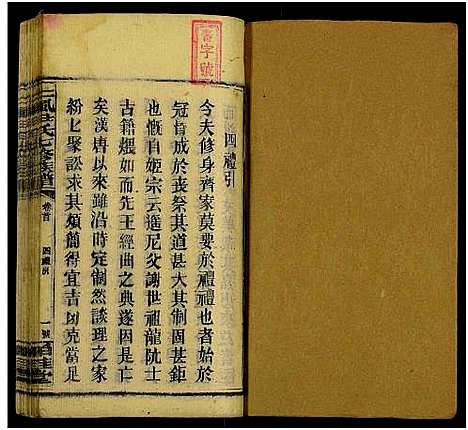 書字號
四禮引
今夫修身齊家莫要於禮禮也者始於
冠昏成於喪祭其道甚大其制固甚鉅
也慨自姬宗云邈尼父謝世祖龍阬士
古籍煨如而先王經曲之典遂因是亡
矣漢唐以來雖沿時定制然談理之家
紛乚聚訟求其煩簡得宜吉凶克當足
鳳尹氏七修族譜
卷首
四禮引
一
號